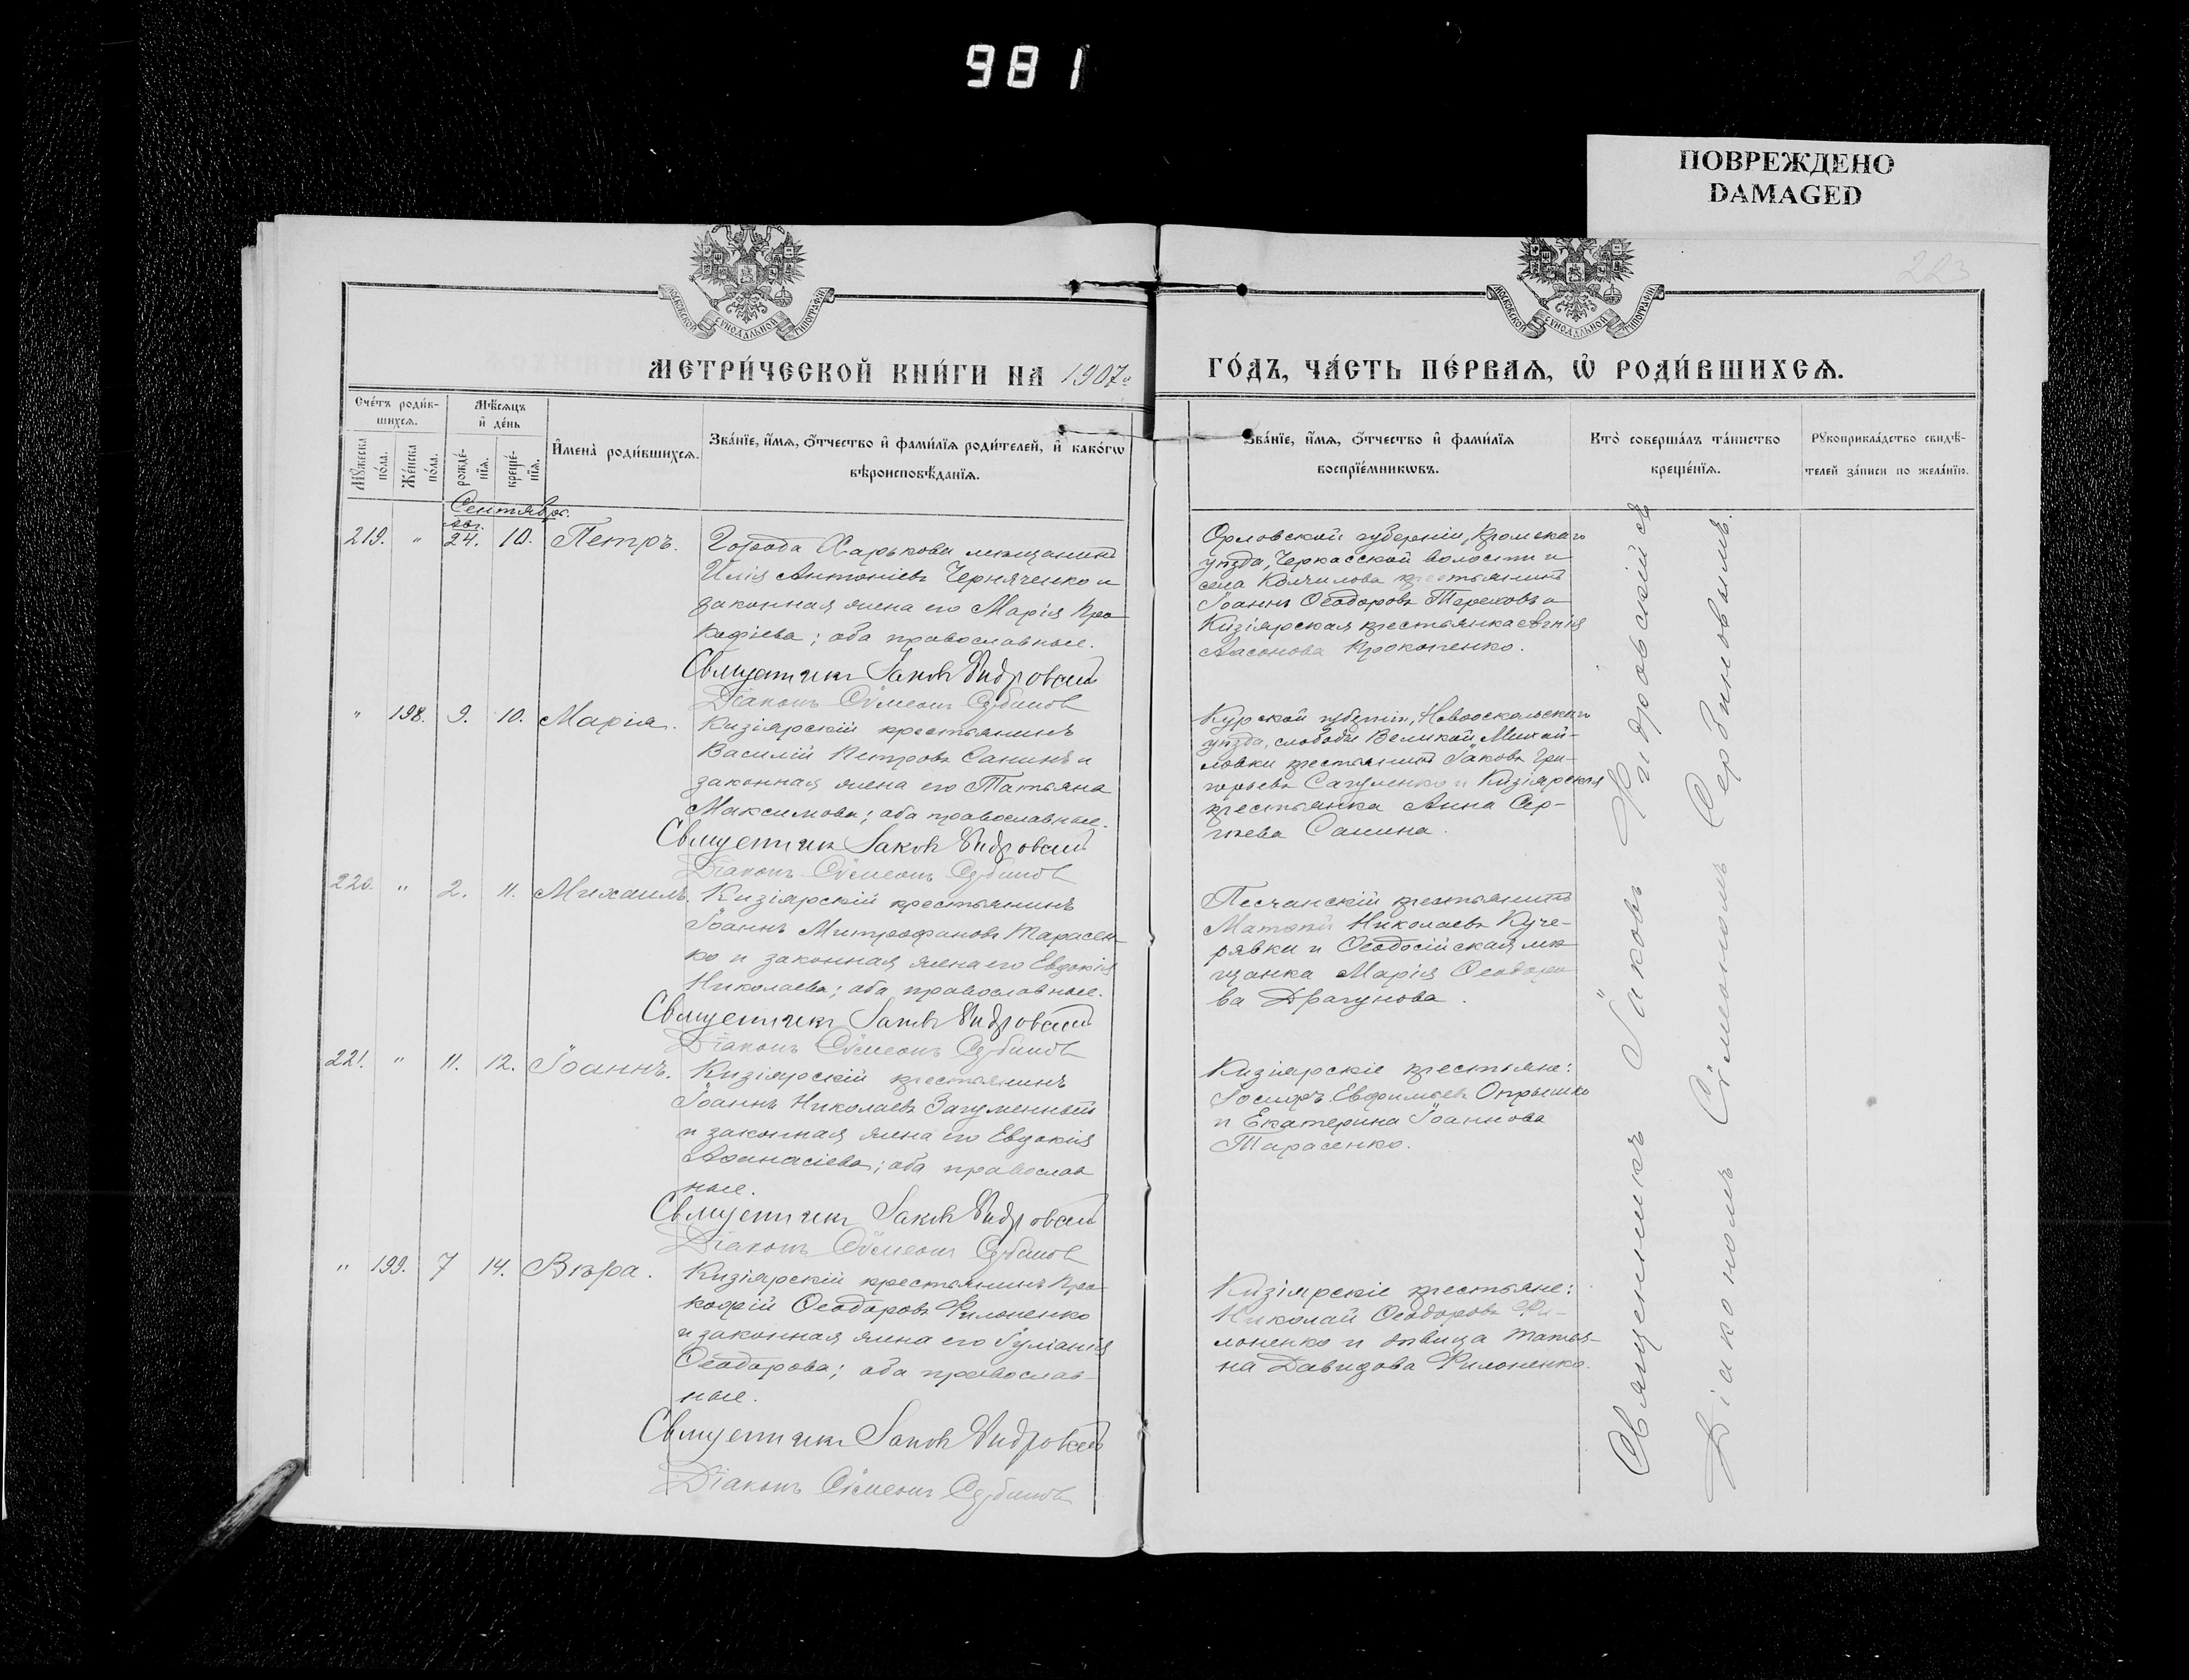 981
ПОВРЕЖДЕНО
DAMAGED
223
МОСКОВСКОЙ СѴНОДАЛЬНОЙ ТИПОГРАФІИ
МОСКОВСКОЙ СѴНОДАЛЬНОЙ ТИПОГРАФІИ
МЕТРИ́ЧЕСКОЙ КНИ́ГИ НА 1907 г.
ГО́ДЪ, ЧА́СТЬ ПЕ́РВАѦ, Ѡ҆ РОДИ́ВШИХСѦ.
Сче́тъ роди́в-
шихсѧ.
Мꙋ́жеска по́ла.
Же́нска по́ла.
Мѣ́сѧцъ
и҆ де́нь
рожде́-
нїѧ.
креще́-
нїѧ.
И҆мена̀ роди́вшихсѧ.
Зва́нїе, и҆́мѧ, ѻ҆́тчество и҆ фами́лїѧ роди́телей, и҆ како́гѡ
вѣроисповѣ́данїѧ.
Зва́нїе, и҆́мѧ, ѻ҆́тчество и҆ фами́лїѧ
воспрїе́мникѡвъ.
Кто̀ соверша́лъ та́инство
креще́нїѧ.
Рꙋкоприкла́дство свидѣ́-
телей за́писи по жела́нїю.
Сентябрь.
Авг.
219. " 24. 10. Петръ.
Города Харькова мещанинъ
Илія Антоніевъ Черняченко и
законная жена его Марія Про
кофіева; оба православные.
Священникъ Іаковъ Жидровскій
Діаконъ Сѵмеонъ Сербиновъ
Орловской губерніи, Кромскаго
уѣзда, Черкасской волости и
села Колчилова крестьянинъ
Іоаннъ Ѳеодоровъ Тереховъ и
Кизіярская крестьянка Агнія
Прокопенко.
" 198. 9. 10. Марія.
Кизіярскій крестьянинъ
Василій Петровъ Санинъ и
законная жена его Татьяна
Максимова; оба православные.
Священникъ Іаковъ Жидровскій
Діаконъ Сѵмеонъ Сербиновъ
Курской губерніи, Новооскольскаго
уѣзда, слободы Великой Михай-
ловки крестьянинъ Іаковъ Гри-
горьевъ Сагуленко и Кизіярская
крестьянка Анна Сер-
гѣева Санина.
220. " 2. 11. Михаилъ.
Кизіярскій крестьянинъ
Іоаннъ Митрофановъ Тарасен-
ко и законная жена его Евдокія
Николаева; оба православные.
Священникъ Іаковъ Жидровскій
Діаконъ Сѵмеонъ Сербиновъ
Песчанскій крестьянинъ
Николаевъ Куче-
рявки и Ѳеодосійская мѣ
щанка Марія Ѳеодоро
ва Драгунова.
221. " 11. 12. Іоаннъ.
Кизіярскій крестьянинъ
Іоаннъ Николаевъ Загуменный
и законная жена его Евдокія
Аѳанасіева; оба православ
ные.
Священникъ Іаковъ Жидровскій
Діаконъ Сѵмеонъ Сербиновъ
Кизіярскіе крестьяне:
Іосифъ Евфиміевъ Опрышко
и Екатерина Іоаннова
Тарасенко.
" 199. 7 14. Вѣра.
Кизіярскій крестьянинъ Про
кофій Ѳеодоровъ Филоненко
и законная жена его Іуліанія
Ѳеодорова; оба православ-
ные.
Священникъ Іаковъ Жидровскій
Діаконъ Сѵмеонъ Сербиновъ
Кизіярскіе крестьяне:
Николай Ѳеодоровъ Фи-
лоненко и дѣвица Татья-
на Давидова Филоненко.
Священникъ Іаковъ Жидровскій съ
Діакономъ Сѵмеономъ Сербиновымъ.